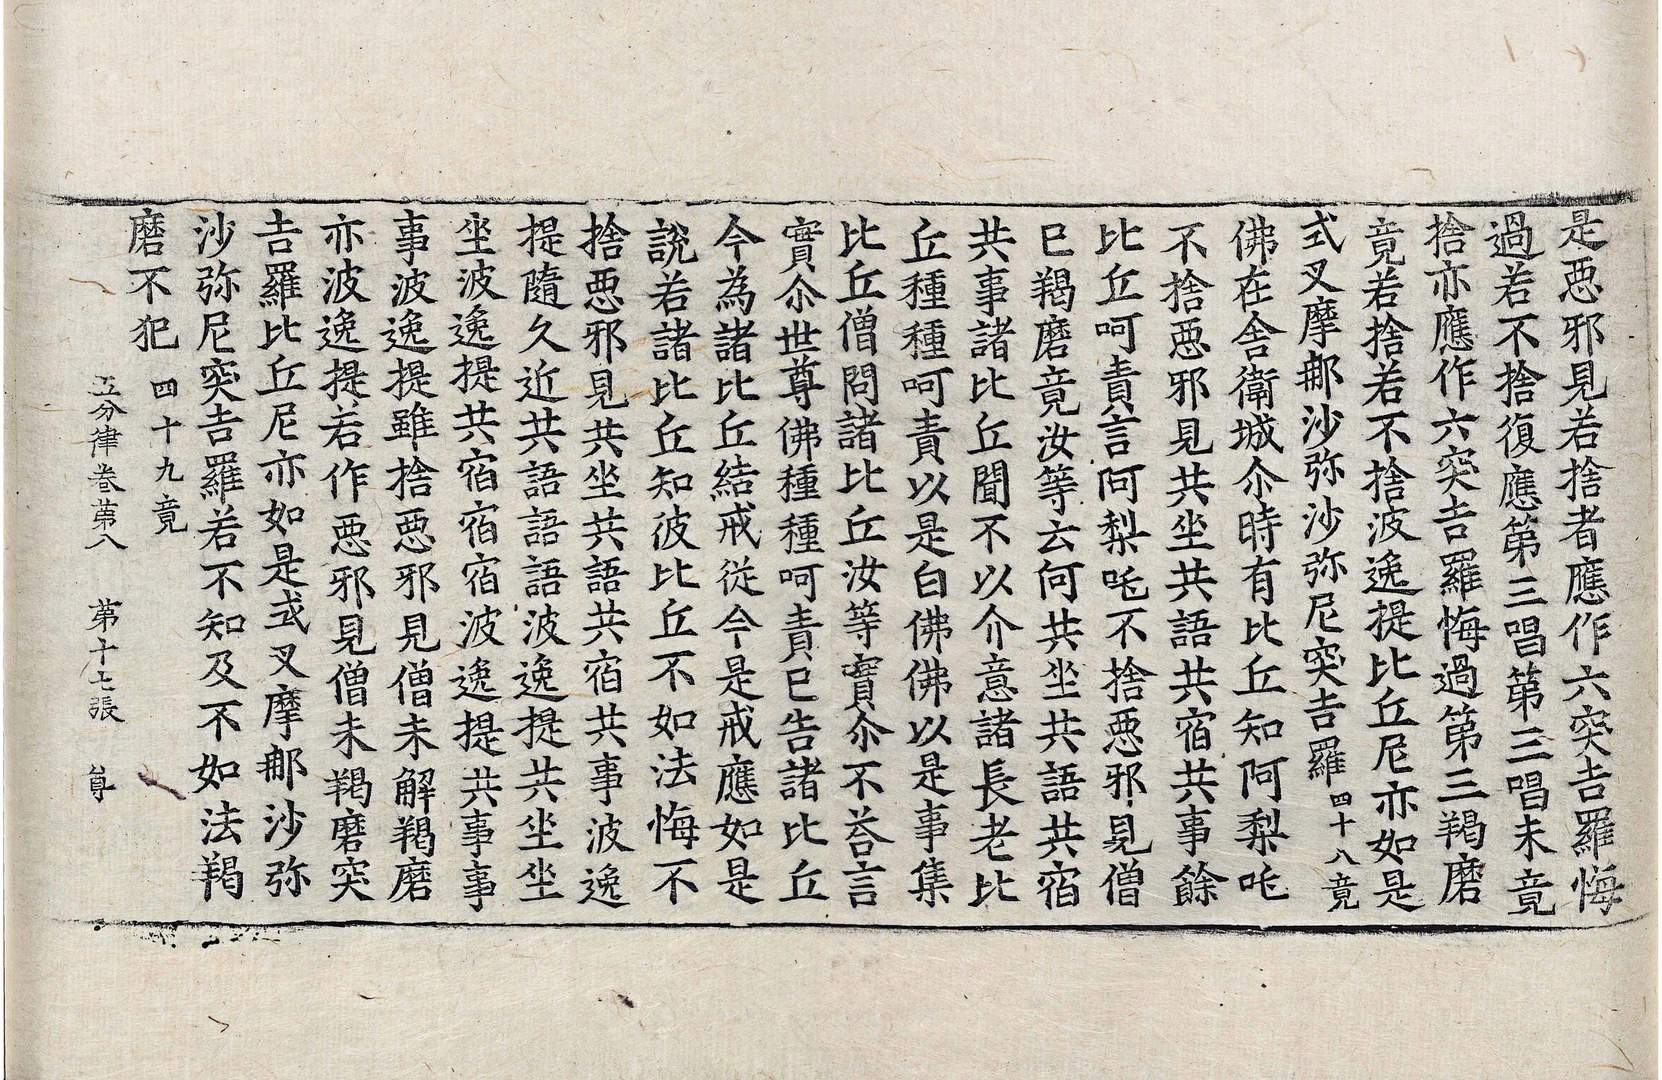 是惡邪見若捨者應作六突吉羅悔
過若不捨復應第三唱第三唱未竟
捨亦應作六突吉羅悔過第三羯磨
竟若捨若不捨波逸提比丘尼亦如是
式叉摩那沙弥沙弥尼突吉羅四十八竟
佛在舍衛城尒時有比丘知阿梨吒
不捨惡邪見共坐共語共宿共事餘
比丘呵責言阿梨吒不捨惡邪見僧
已羯磨竟汝等云何共坐共語共宿
共事諸比丘聞不以介意諸長老比
丘種種呵責以是白佛佛以是事集
比丘僧問諸比丘汝等實尒不荅言
實尒世尊佛種種呵責已告諸比丘
今為諸比丘結戒從今是戒應如是
說若諸比丘知彼比丘不如法悔不
捨惡邪見共坐共語共宿共事波逸
提隨久近共語語語波逸提共坐坐
坐波逸提共宿宿宿波逸提共事事
事波逸提雖捨惡邪見僧未解羯磨
亦波逸提若作惡邪見僧未羯磨突
吉羅比丘尼亦如是式叉摩那沙弥
沙弥尼突吉羅若不知及不如法羯
磨不犯 四十九竟
五分律卷第八 第十七張